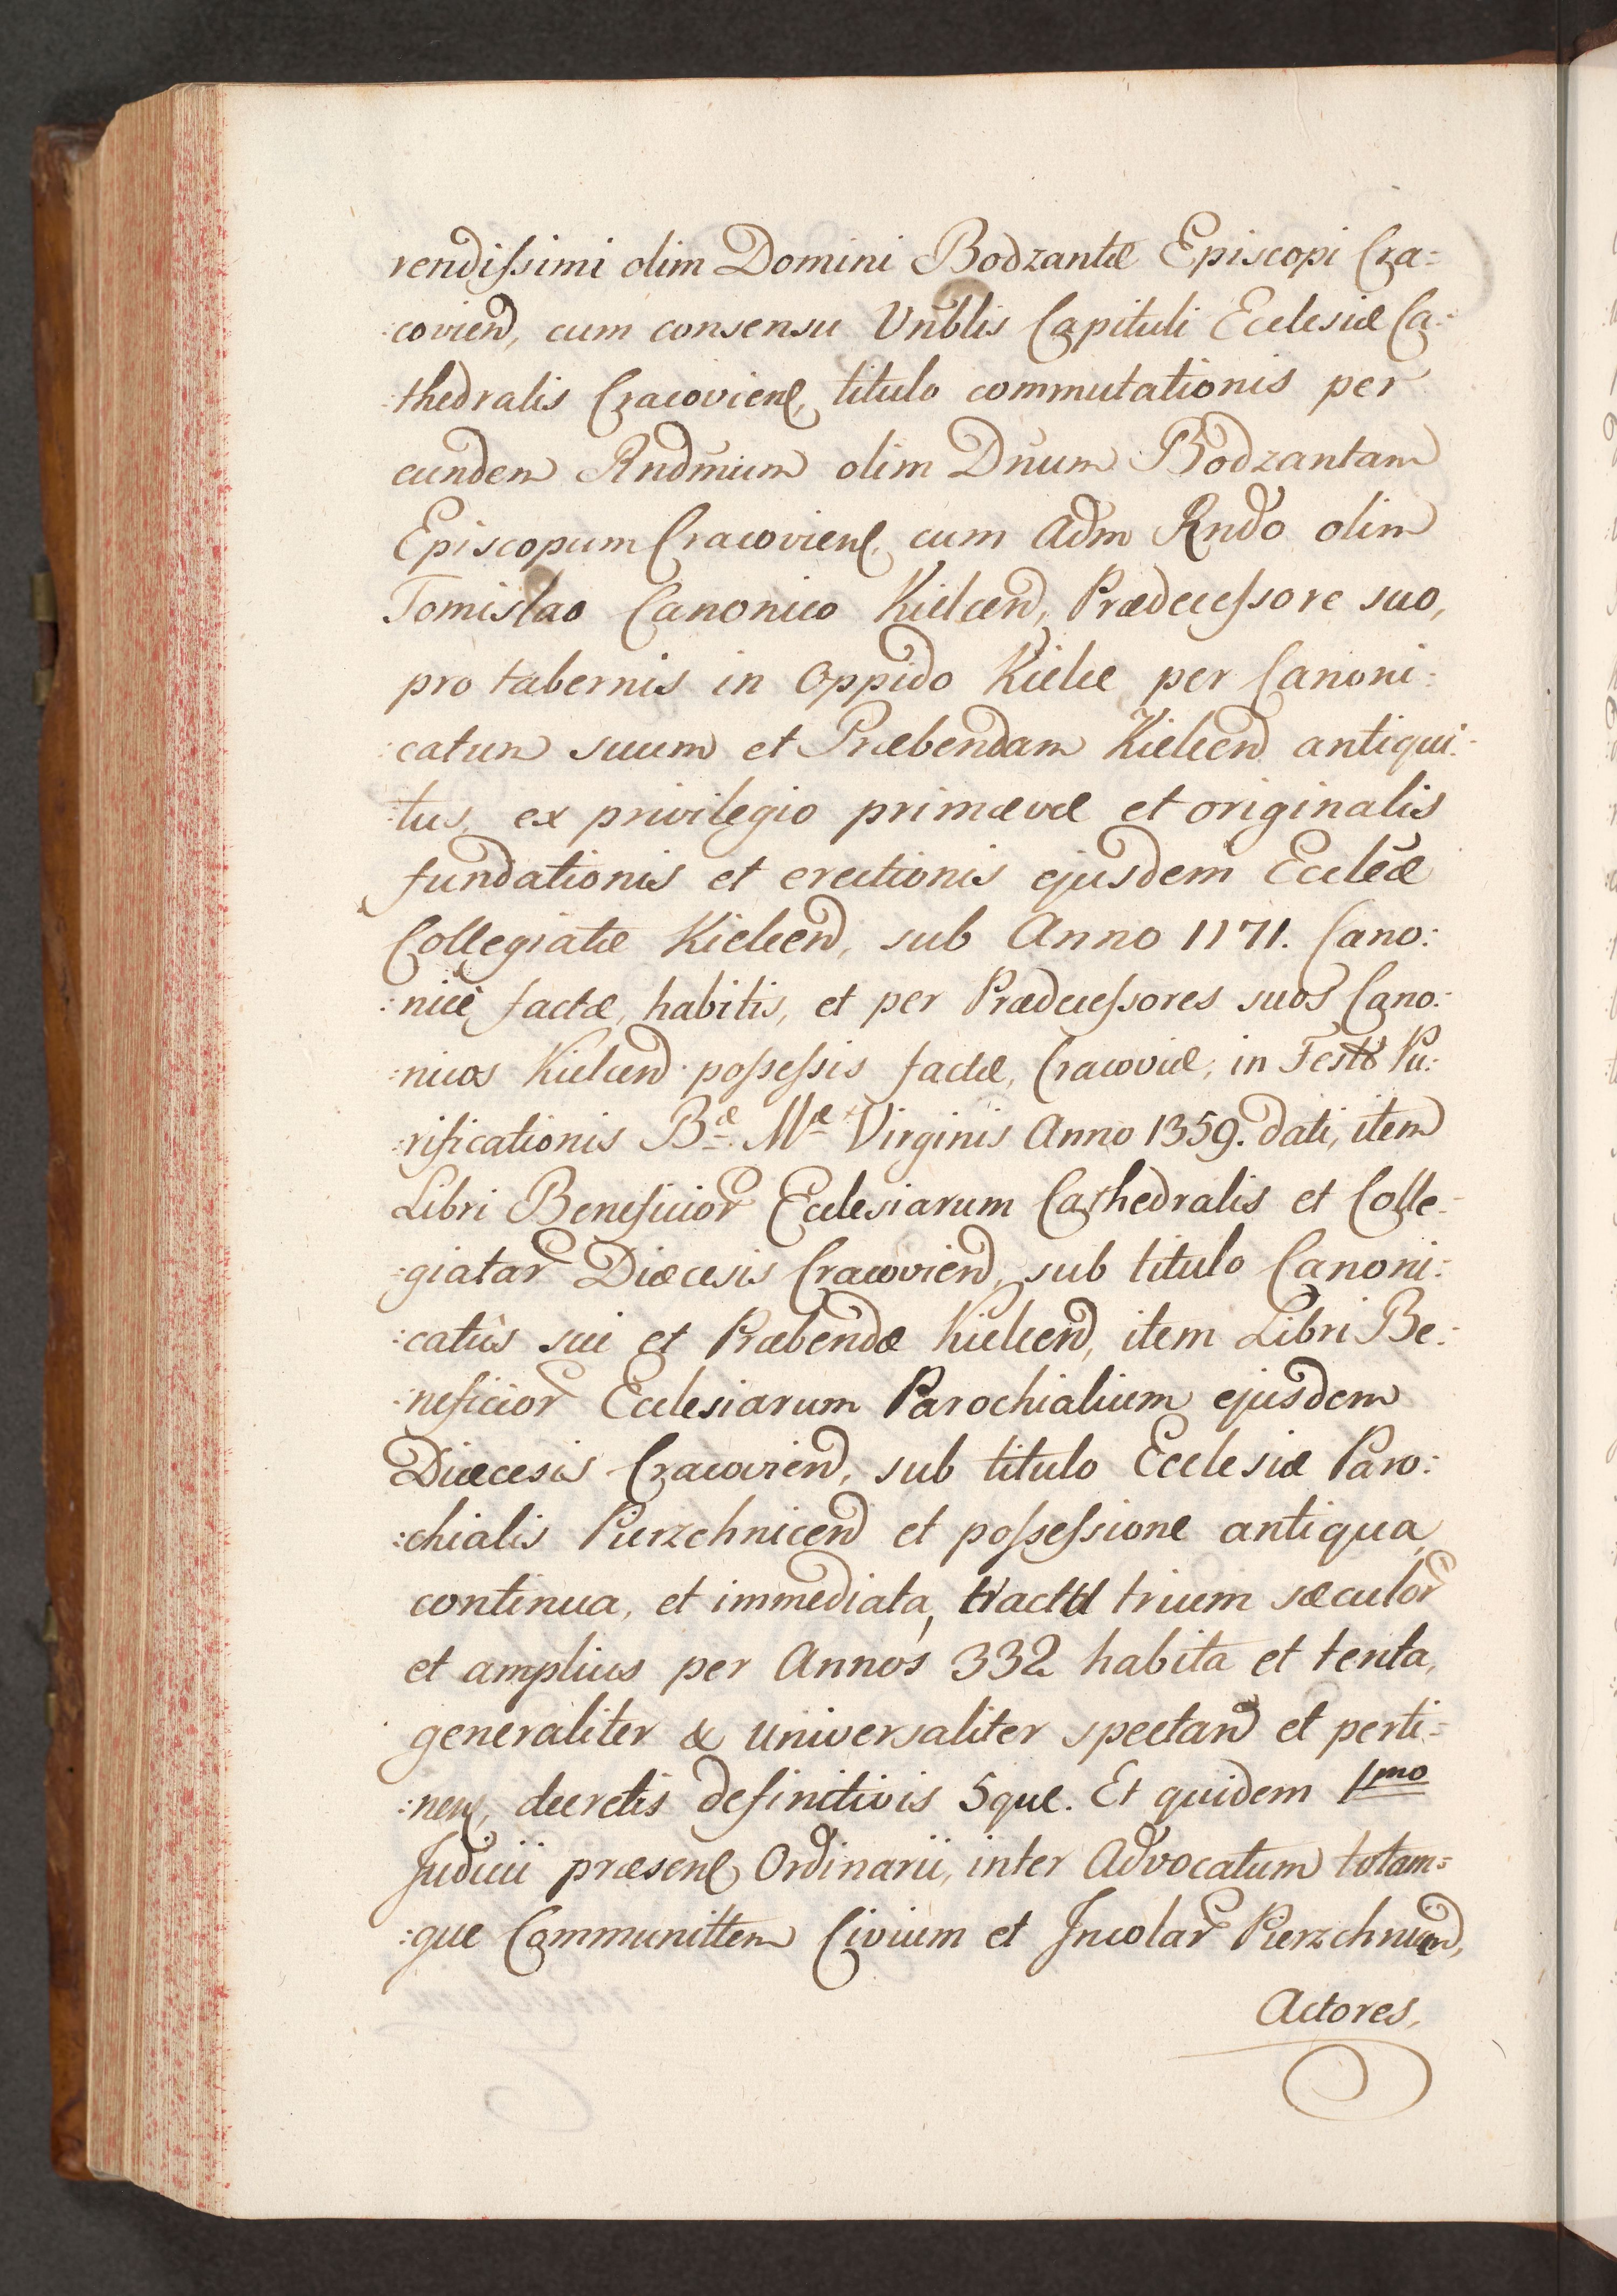 rendissimi olim Domini Bodzantæ Episcopi Cra=
:covien, cum consensu Vnblis Capituli Ecclesiæ Ca:
:thedralis Cracovien, titulo commutationis per
eundem Rndmum olim Dnum Bodzantam
Episcopum Cracovien, cum Adm Rndo olim
Tomislao Canonico Kielcen, Prædecessore suo,
pro tabernis in Oppido Kielce per Canoni:
:catum suum et Præbendam Kielcen antiqui:
:tus, ex privilegio primævæ et originalis
fundationis et erectionis ejusdem Eccleæ
Collegiatæ Kielcen, sub Anno 1171. Cano:
:nicè factæ, habitis, et per Prædecessores suos Cano:
:nicos Kielcen possessis factæ, Cracoviæ, in Festo Pu:
:rificationis Bæ Mæ Virginis Anno 1359. dati, item
Libri Beneficior Ecclesiarum Cathedralis et Colle=
:giatar Diœcesis Cracovien, sub titulo Canoni:
:catûs sui et Præbendæ Kielcen, item Libri Be:
:neficior Ecclesiarum Parochialium ejusdem
Diœcesis Cracovien, sub titulo Ecclesiæ Paro:
:chialis Pierzchnicen et possessione antiqua,
continua, et immediata, tractu trium sæculor
et amplius per Annos 332 habita et tenta,
generaliter & universaliter spectan et perti=
:nen, decretis definitivis 5que. Et quidem 1mo
Judicii præsen Ordinarii, inter Advocatum totam=
:que Communittem Civium et Incolar Pierzchnicen,
Actores,